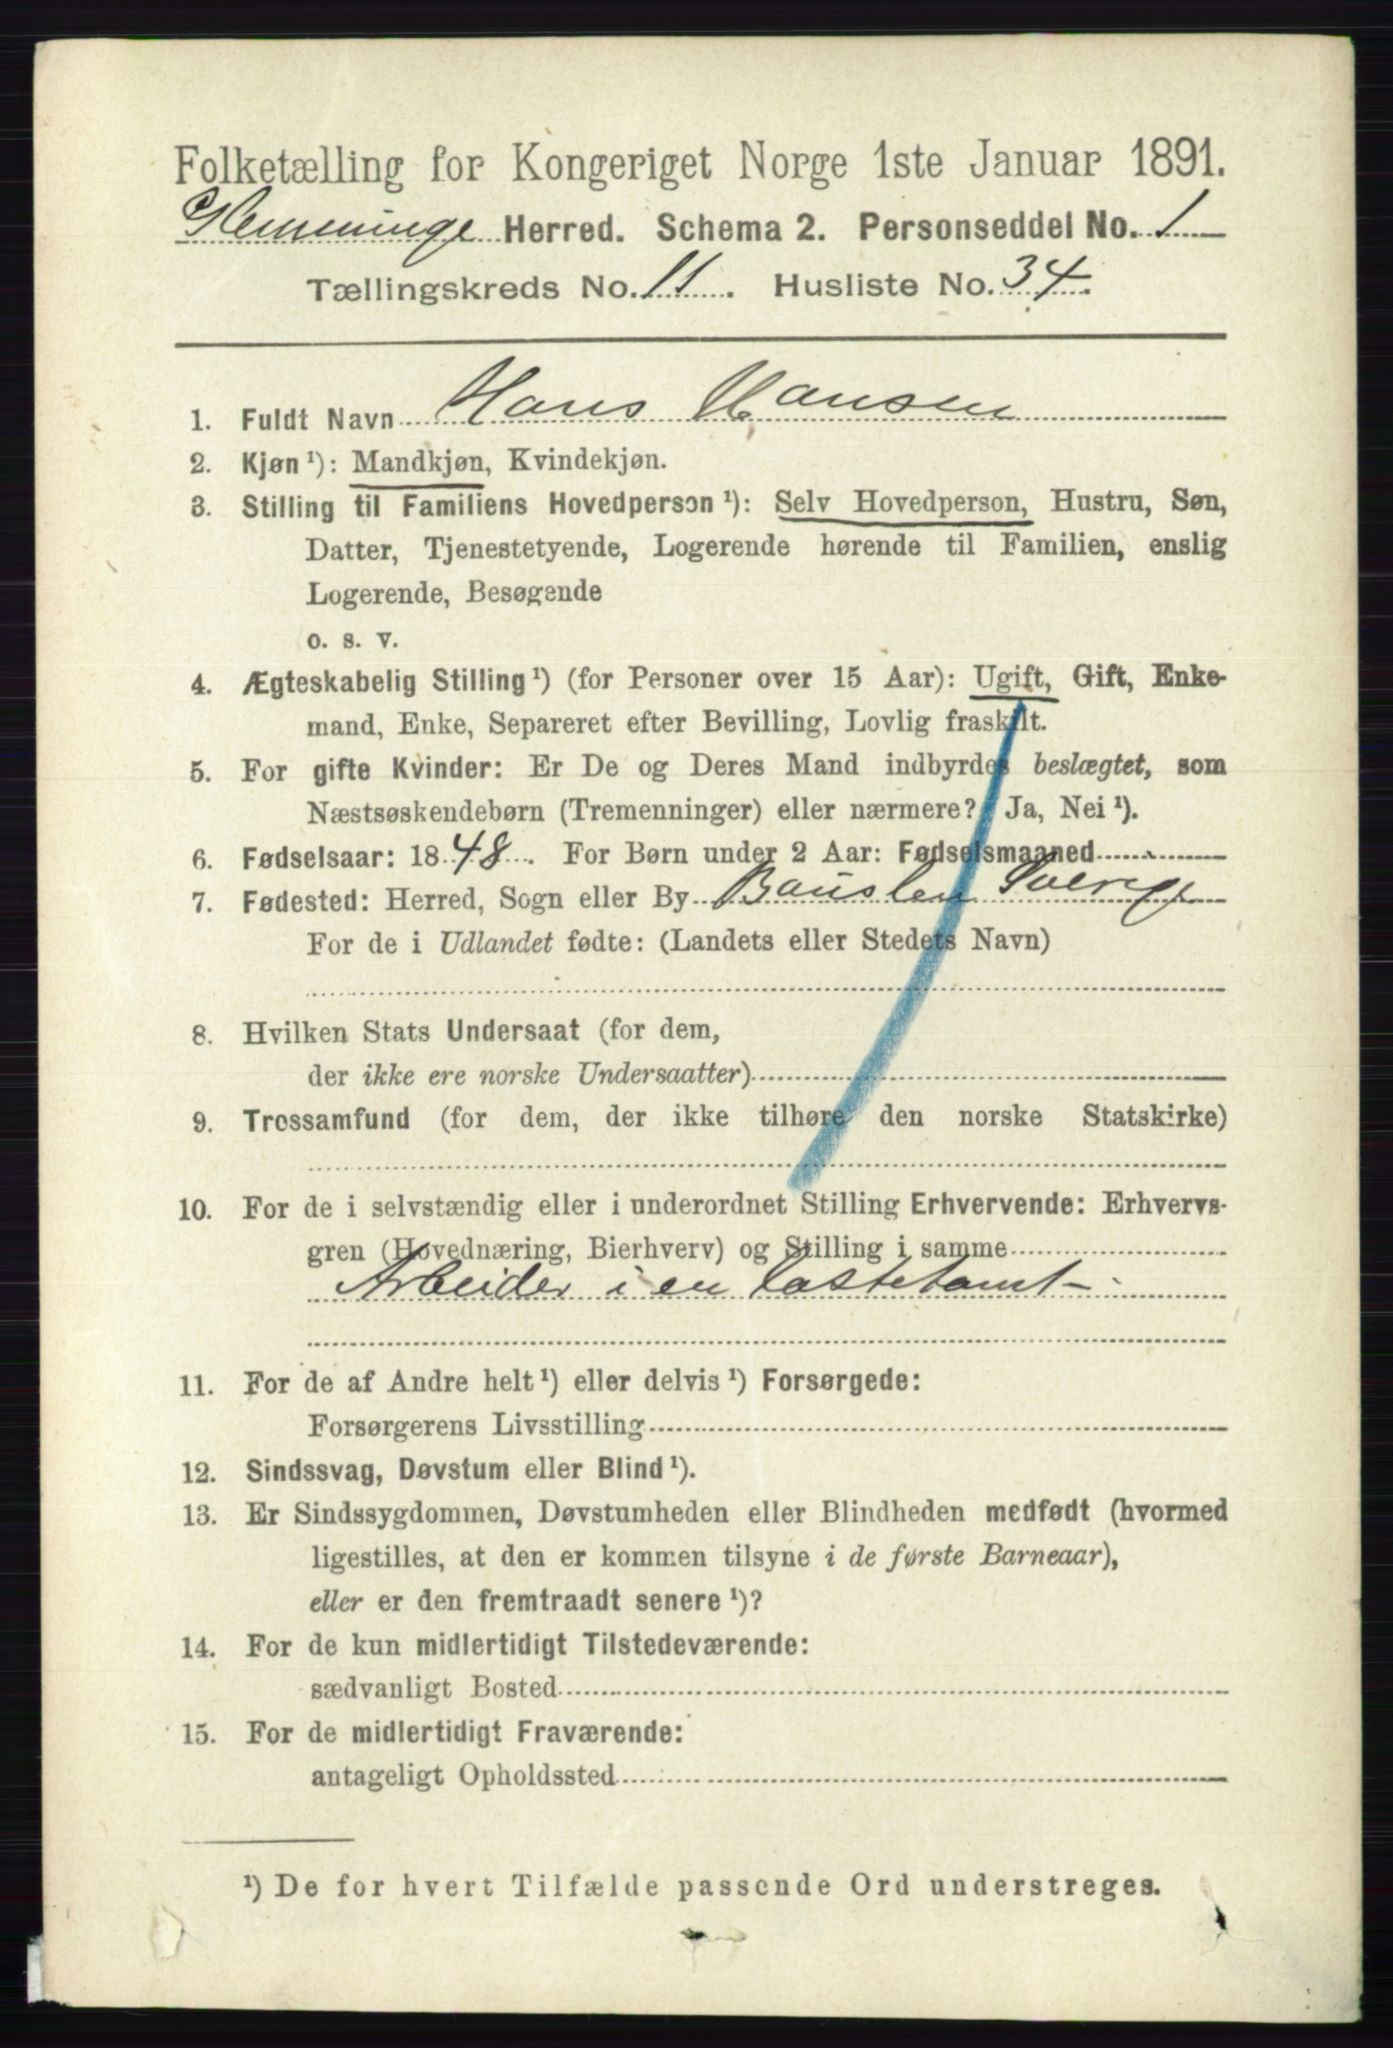 Folketælling for Kongeriget Norge 1ste Januar 1891.
Glemminge Herred. Schema 2. Personseddel No. 1
Tællingskreds No. 11. Husliste No. 34.
1. Fuldt Navn Hans Hansen
2. Kjøn ¹): Mandkjøn, Kvindekjøn.
3. Stilling til Familiens Hovedperson ¹): Selv Hovedperson, Hustru, Søn,
Datter, Tjenestetyende, Logerende hørende til Familien, enslig
Logerende, Besøgende
o. s. v.
4. Ægteskabelig Stilling ¹) (for Personer over 15 Aar): Ugift, Gift, Enke-
mand, Enke, Separeret efter Bevilling, Lovlig fraskilt.
5. For gifte Kvinder: Er De og Deres Mand indbyrdes beslægtet, som
Næstsøskendebørn (Tremenninger) eller nærmere? Ja, Nei ¹).
6. Fødselsaar: 1848. For Børn under 2 Aar: Fødselsmaaned
7. Fødested: Herred, Sogn eller By Bauslen Sverige
For de i Udlandet fødte: (Landets eller Stedets Navn)
8. Hvilken Stats Undersaat (for dem,
der ikke ere norske Undersaatter)
9. Trossamfund (for dem, der ikke tilhøre den norske Statskirke)
10. For de i selvstændig eller i underordnet Stilling Erhvervende: Erhvervs-
gren (Hovednæring, Bierhverv) og Stilling i samme
Arbeider i en lastetomt
11. For de af Andre helt ¹) eller delvis ¹) Forsørgede:
Forsørgerens Livsstilling
12. Sindssvag, Døvstum eller Blind ¹).
13. Er Sindssygdommen, Døvstumheden eller Blindheden medfødt (hvormed
ligestilles, at den er kommen tilsyne i de første Barneaar),
eller er den fremtraadt senere ¹)?
14. For de kun midlertidigt Tilstedeværende:
sædvanligt Bosted
15. For de midlertidigt Fraværende:
antageligt Opholdssted
¹) De for hvert Tilfælde passende Ord understreges.